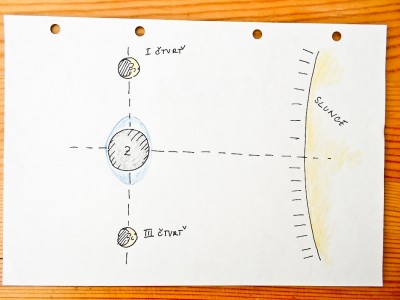 I ČTVRŤ
SLUNCE
2
III ČTVRŤ